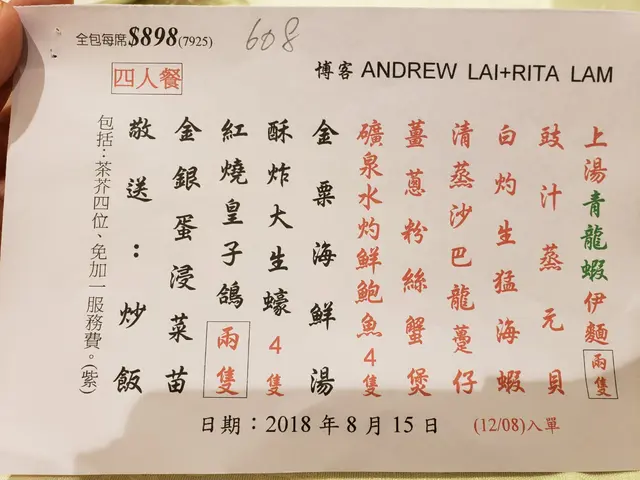 全包每席$898(7925)
608
四人餐
博客 ANDREW LAI+RITA LAM
上湯青龍蝦伊麵兩隻
豉汁蒸元貝
白灼生猛海蝦
清蒸沙巴龍躉仔
薑蔥粉絲蟹煲
礦泉水灼鮮鮑魚4隻
金粟海鮮湯
酥炸大生蠔4隻
紅燒皇子鴿兩隻
金銀蛋浸菜苗
敬送：炒飯
包括：茶芥四位、免加一服務費。(紫)
日期：2018年8月15日
(12/08)入單